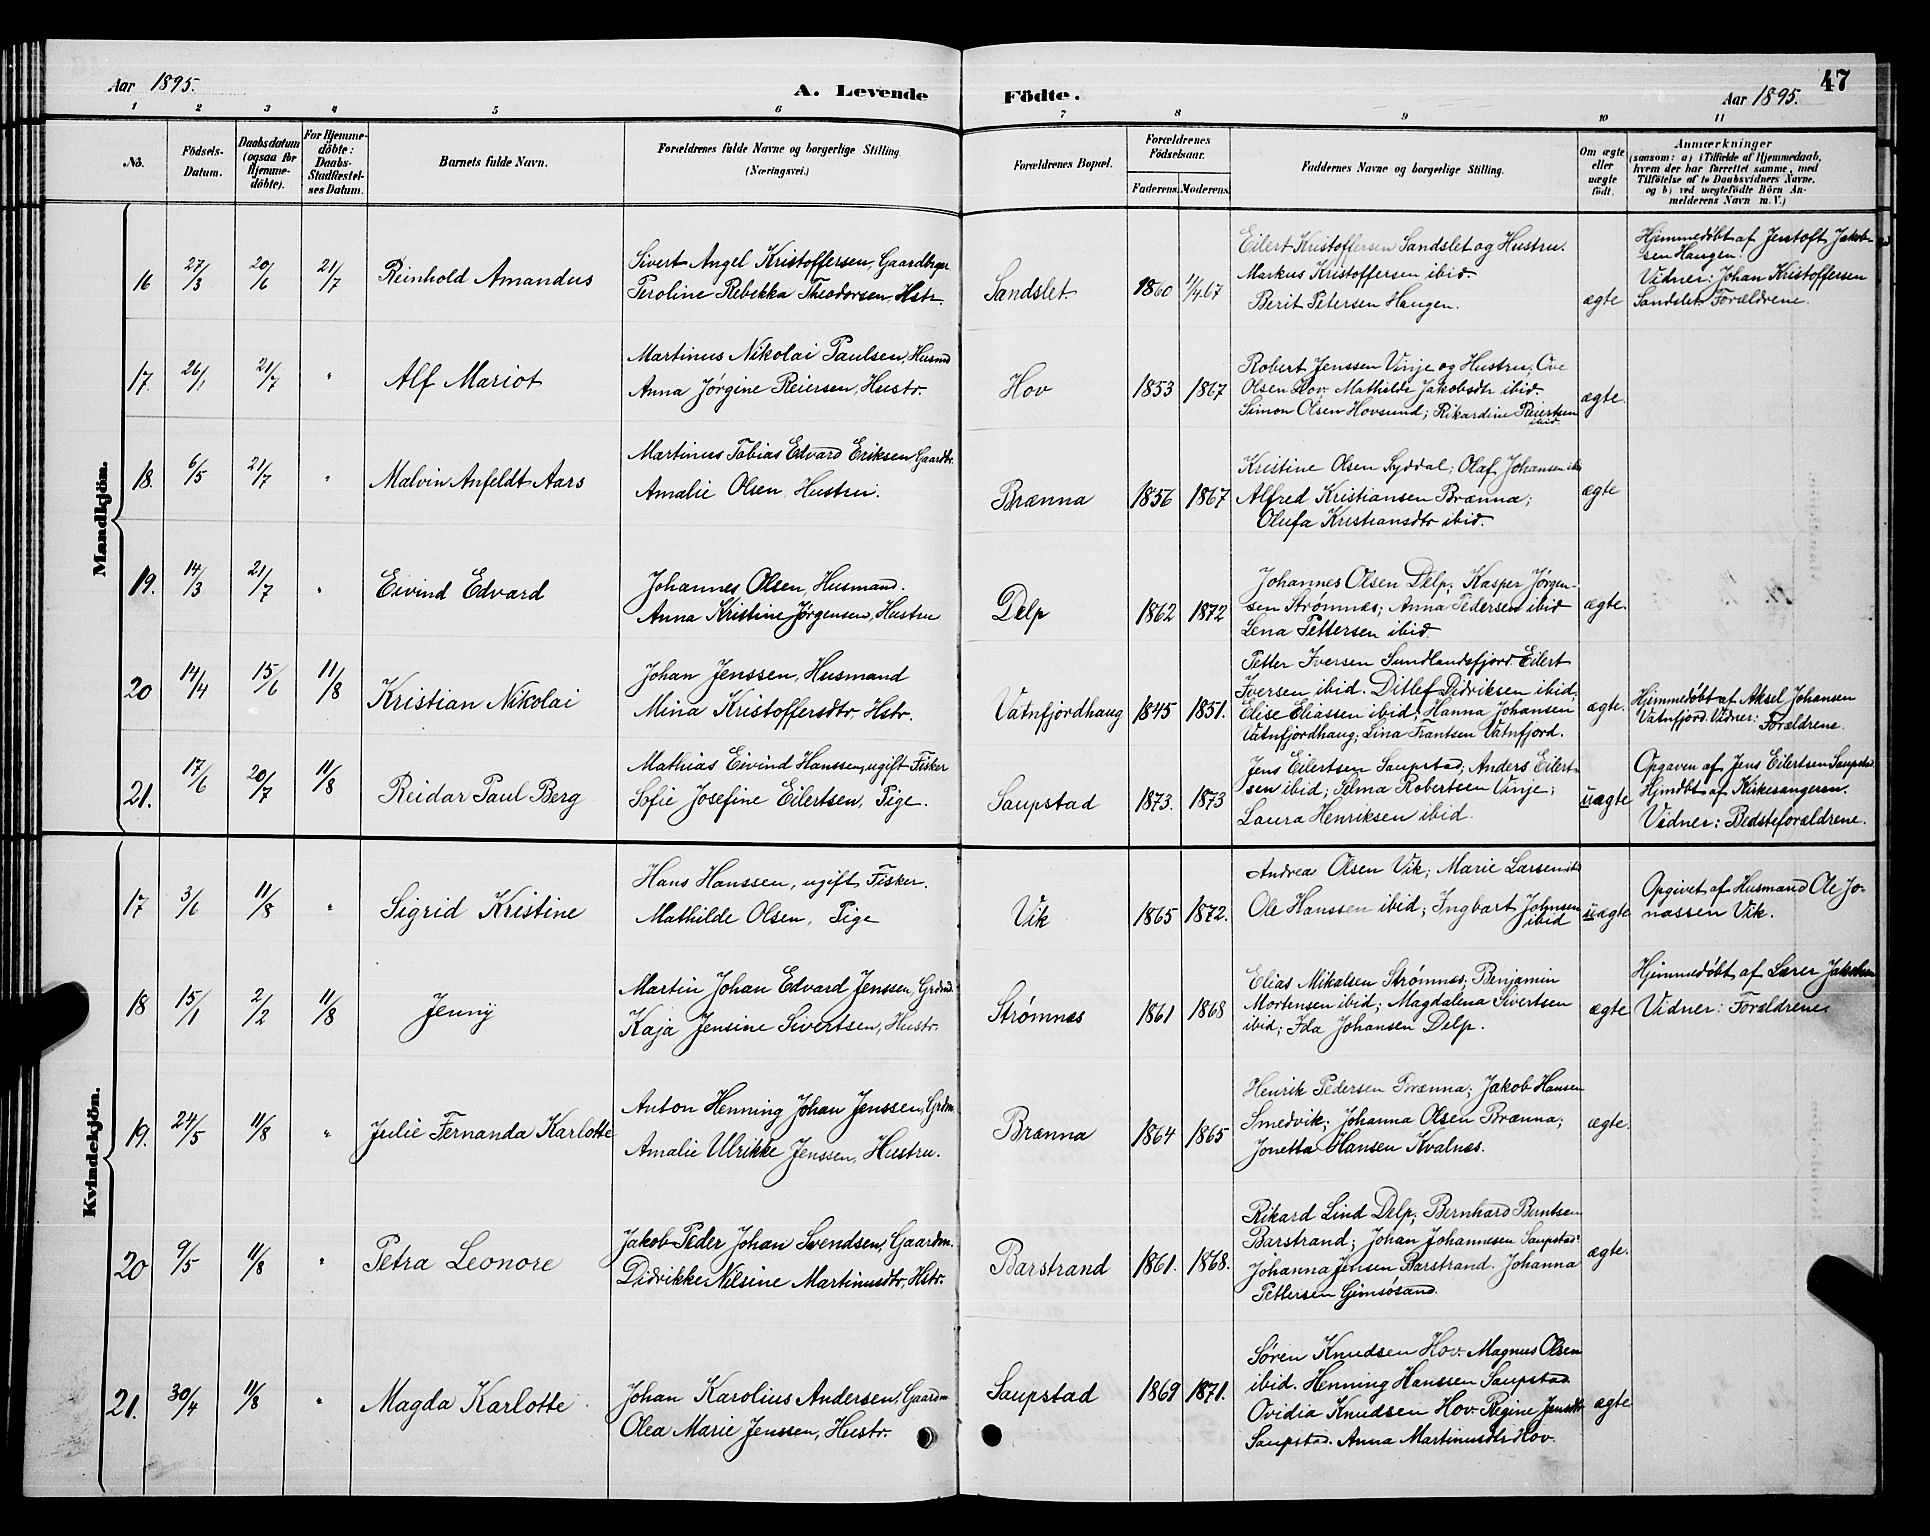 Aar 1895.
A. Levende Födte.
Aar 1895.
47
1 2 3 4 5 6 7 8 9 10 11
No.
Födsels-Datum.
Daabsdatum (ogsaa for Hjemmedöbte).
For Hjemmedöbte: Daabs-Stadfæstelses Datum.
Barnets fulde Navn.
Forældrenes fulde Navne og borgerlige Stilling (Næringsvei.)
Forældrenes Bopæl.
Forældrenes Födselsaar.
Faderens. Moderens.
Faddernes Navne og borgerlige Stilling.
Om ægte eller uægte födt.
Anmærkninger
(saasom: a) i Tilfælde af Hjemmedaab,
hvem der har forrettet samme, med
Tilföielse af to Daabsvidners Navne,
og b) ved uægtefödte Börn An-
melderens Navn m. V.)
Mandkjön.
16 27/3 20/6 21/7 Reinhold Amandus
Sivert Angel Kristoffersen, Gaardbrger
Peroline Rebekka Theodorsen, Hstr.
Sandslet 1860 1/4 67
Eilert Kristoffersen Sandslet og Hustru.
Markus Kristoffersen ibid
Berit Petersen Haugen.
ægte
Hjemmedøbt af Jentoft Jakob-
sen Haugen.
Vidner: Johan Kristoffersen
Sandslet. Forældrene.
17. 26/1 21/7 " Alf Mariot
Martinus Nikolai Paulsen, Husmd
Anna Jørgine Reiersen, Hustr.
Hov 1853 1867
Robert Jenssen Vinje og Hustru, Ove
Olsen Hov. Mathilde Jakobsdtr ibid.
Simon Olsen Hovsund; Rikardine Reiertsen
ibid.
ægte.
18. 6/5 21/7 " Malvin Anfeldt Aars
Martinus Tobias Edvard Eriksen Gaardbr.
Amalie Olsen, Hustru.
Brænna 1856 1867
Kristine Olsen Syddal; Olaf Johansen ibid
Alfred Kristiansen Brænna;
Olufa Kristiansdtr ibid.
ægte
19. 14/3 21/7 " Eivind Edvard
Johannes Olsen, Husmand.
Anna Kristine Jørgensen, Hustru
Delp 1862 1872
Johannes Olsen Delp; Kasper Jørgen-
sen Strømnes; Anna Pedersen ibid
Lena Pettersen ibid.
ægte.
20 14/4 15/6 11/8 Kristian Nikolai
Johan Jenssen, Husmand
Mina Kristoffersdtr. Hstr.
Vatnfjordhaug 1845 1851.
Petter Iversen Sundlandsfjord. Eilert
Iversen ibid. Ditlef Didriksen ibid.
Elise Eliassen ibid; Hanna Johansen
Vatnfjordhaug; Lina Frantsen Vatnfjord.
ægte.
Hjemmedøbt af Aksel Johansen
Vatnfjord. Vidner: Forældrene.
21. 17/6 20/7 11/8 Reidar Paul Berg
Mathias Eivind Hanssen, ugift Fisker
Sofie Josefine Eilertsen, Pige.
Saupstad 1873. 1873
Jens Eilertsen Saupstad; Anders Eilert-
sen ibid; Selma Robertsen Vinje;
Laura Henriksen ibid.
uægte
Opgaven af Jens Eilertsen Saupstad
Hjmdbt af Kirkesangeren.
Vidner: Bedsteforældrene.
Kvindekjön.
17 3/6 11/8 " Sigrid Kristine
Hans Hanssen, ugift Fisker.
Mathilde Olsen, Pige
Vik 1865 1872.
Andrea Olsen Vik; Marie Larsen ibid
Ole Hanssen ibid; Ingbart Johnsen
ibid
uægte
Opgivet af Husmand Ole Jo-
nassen Vik.
18 15/1 2/2 11/8 Jenny
Martin Johan Edvard Jenssen, Grdmd.
Kaja Jensine Sivertsen, Hustr.
Strømnes 1861 1868
Elias Mikalsen Strømnes; Benjamin
Mortensen ibid; Magdalena Sivertsen
ibid; Ida Johansen Delp.
ægte
Hjemmedøbt af Lærer Jakobsen
Vidner: Forældrene.
19. 24/5 11/8 " Julie Fernanda Karlotte
Anton Henning Johan Jenssen, Grdm.
Amalie Ulrikke Jenssen, Hustru.
Brænna 1864 1865
Henrik Pedersen Brænna; Jakob Hansen
Smedvik; Johanna Olsen Brænna;
Jonetta Hansen Kvalnes.
ægte.
20 9/5 11/8 " Petra Leonore
Jakob Peder Johan Svendsen, Gaardm.
Didrikke Nilsine Martinusdtr. Hstr.
Barstrand 1861. 1868.
Rikard Lind Delp; Bernhard Berntsen
Barstrand; Johan Johannesen Saupstad.
Johanna Jensen Barstrand. Johanna
Pettersen Gimsøsand.
ægte.
21. 30/4 11/8 " Magda Karlotte
Johan Karolius Andersen, Gaardm
Olea Marie Jenssen, Hustr.
Saupstad 1869 1871.
Søren Knudsen Hov. Magnus Olsen
ibid. Henning Hanssen Saupstad
Ovidia Knudsen Hov. Regine Jensdtr
Saupstad. Anna Martinusdtr Hov.
ægte